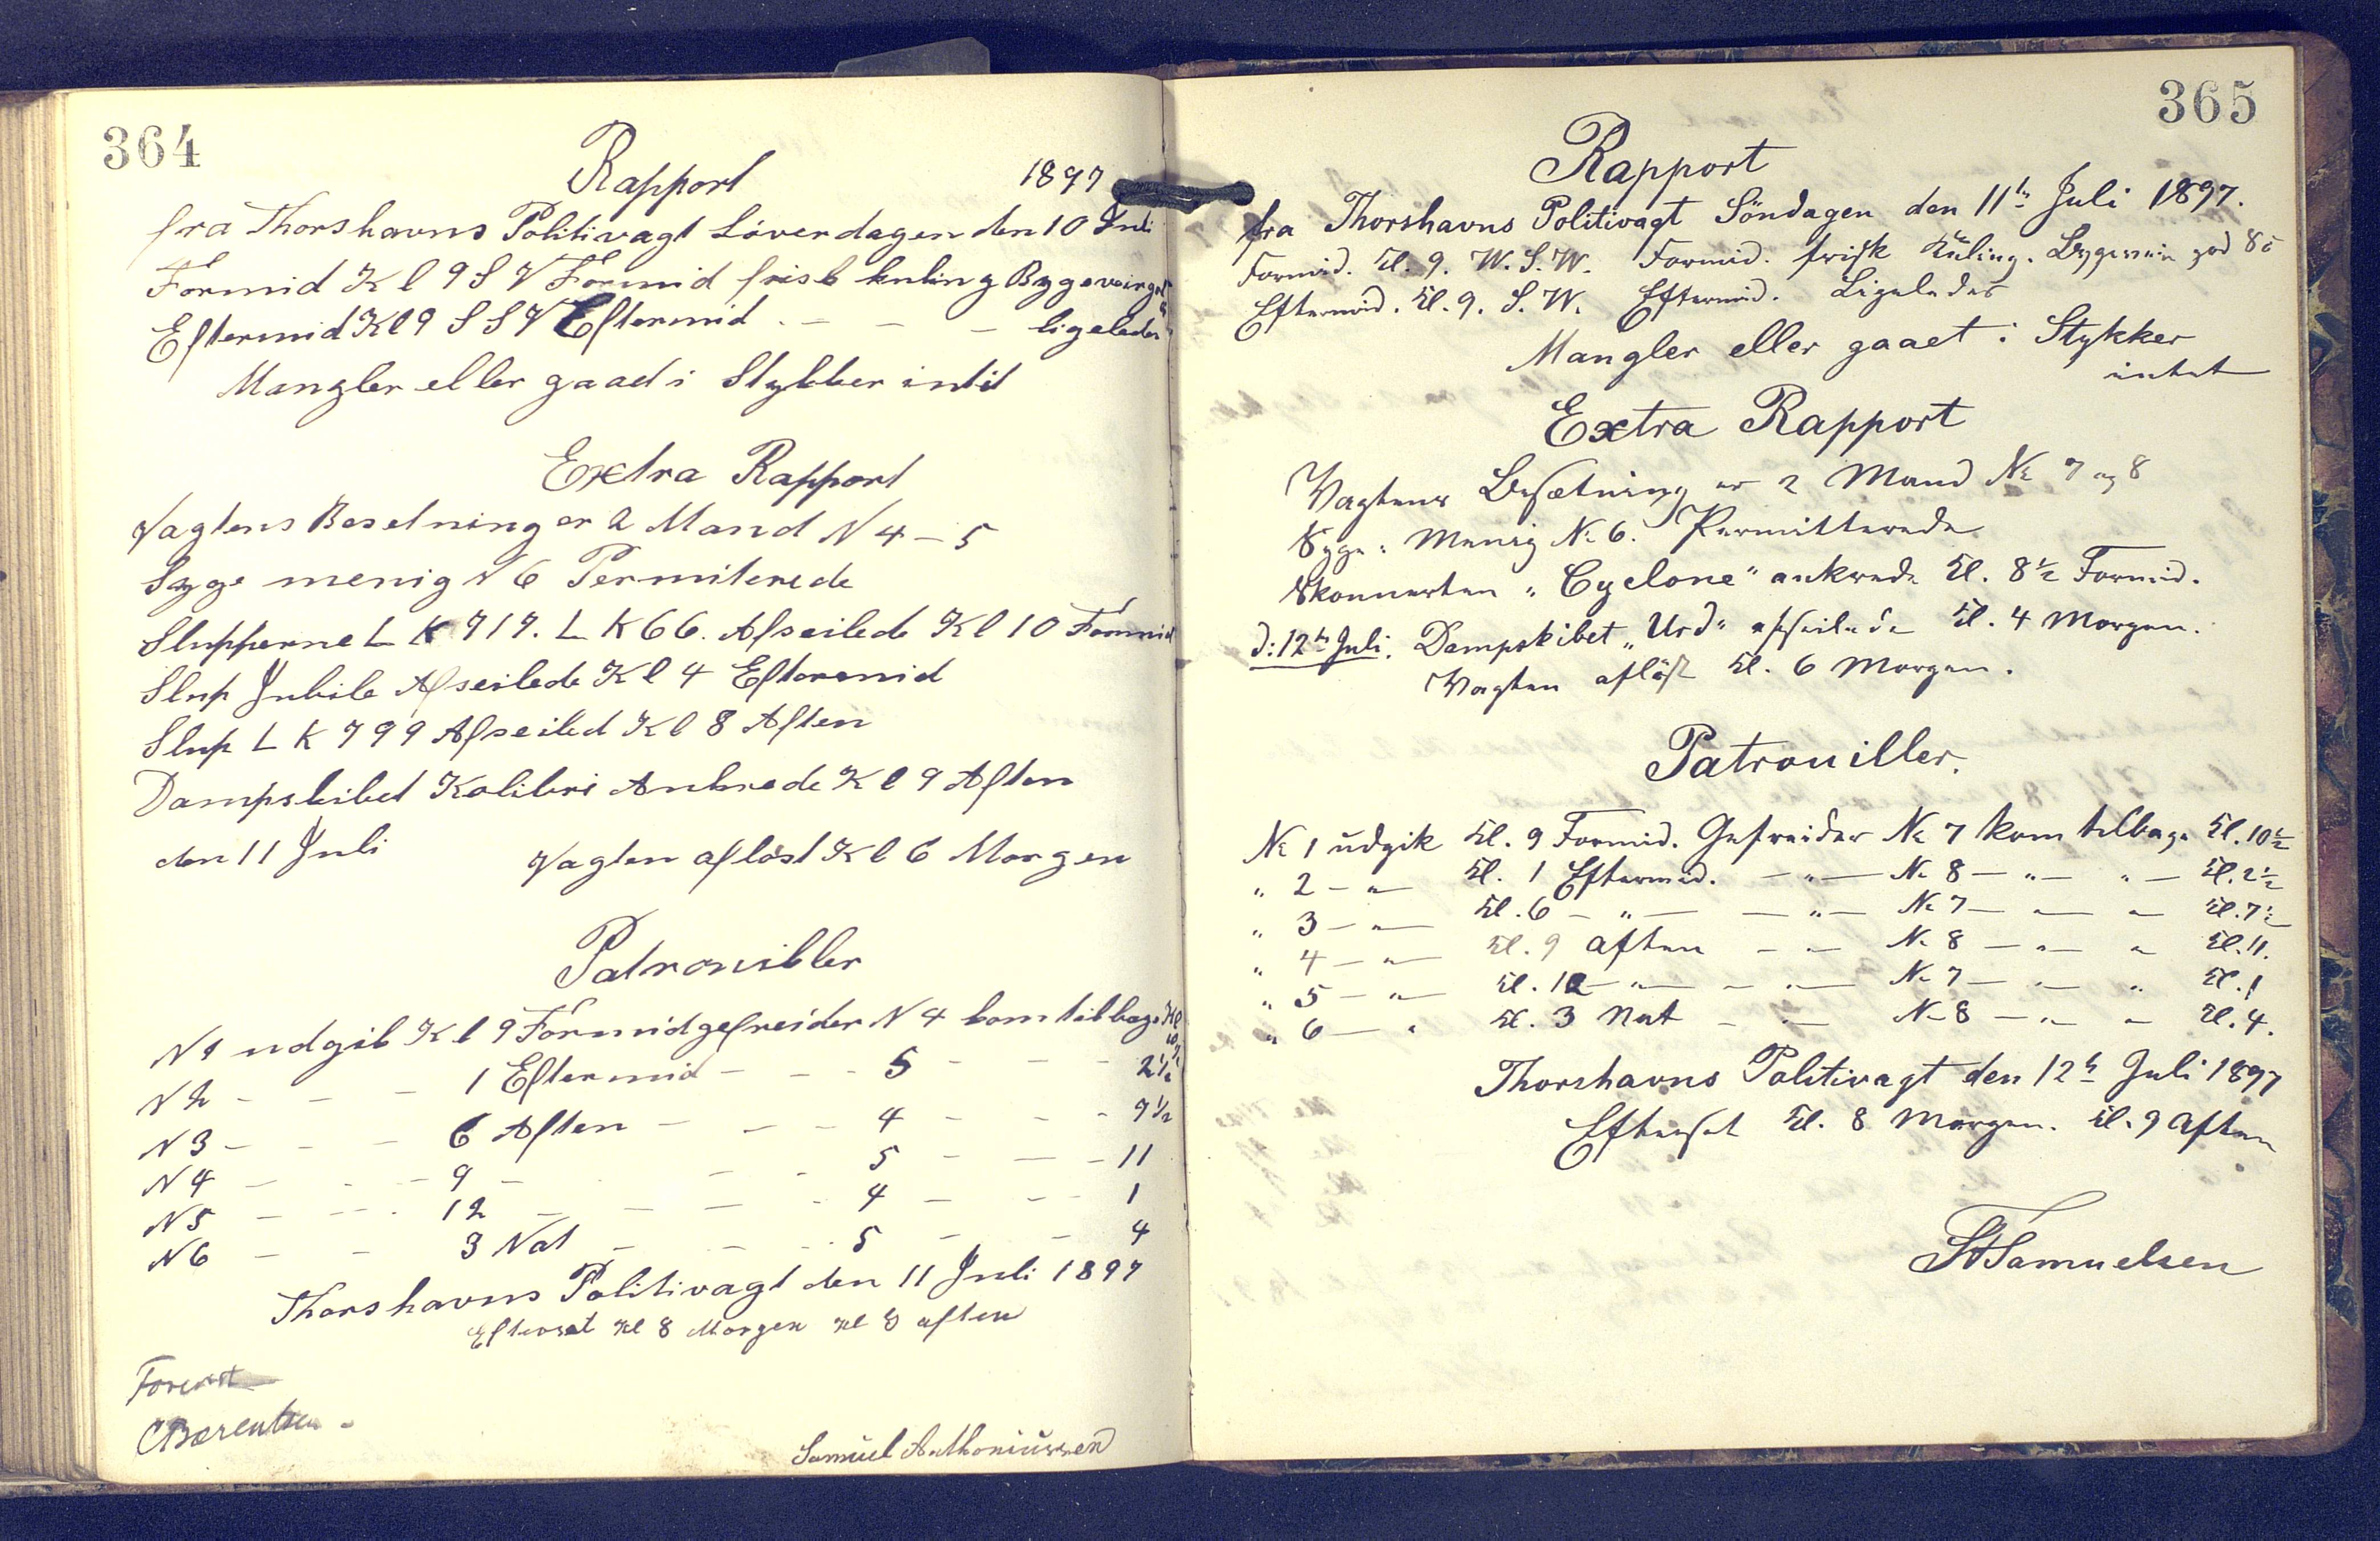 364
Rapport
1897
fra Thorshavns Politivagt Löverdagen den 10 Juli
Formid Kl 9 S V Formid frisk kuling Bygeveir god
Eftermid Kl 9 S S V Eftermid - - - ligeledes
Mangler eller gaad i Stykker intit
Extra Rapport
Vagtens Besetning er 2 Mand N 4 - 5
Syge menig N 6 Permiterede
Slupperne L K 717. L K 66. Afseilede Kl 10 Formid
Slup Jubile Afseilede Kl 4 Eftermid
Slup L K 799 Afseiled Kl 8 Aften
Dampskibet Kolibri Ankrede Kl 9 Aften
den 11 Juli Vagten aflöst Kl 6 Morgen
Patrouiller
N 1 udgik Kl 9 Formid gefreider N 4 kom tilbage Kl 10 1/2
N 2 - - - 1 Eftermid - - - 5 - - - 2 1/2
N 3 - - - 6 Aften - - - 4 - - - 7 1/2
N 4 - - - 9 - - - 5 - - - 11
N 5 - - - 12 - - - - 4 - - - 1
N 6 - - 3 Nat - - - 5 - - 4
Thorshavns Politivagt den 11 Juli 1897
Efterset Kl 8 Morgen Kl 9 aften
Forevist
CBærentsen -
Samuel Anthoniussen
365
Rapport
fra Thorshavns Politivagt Söndagen den 11te Juli 1897.
Formid. Kl. 9. W. S. W. Formid. frisk Kuling. Bygevein god
Eftermid. Kl. 9. S. W. Eftermid. Ligeledes
Mangler eller gaaet i Stykker
intet
Extra Rapport
Vagtens Besætning er 2 Mand No 7 og 8
Syge: Menig No 6. Permitterede
Skonnerten "Cyclone" ankrede Kl. 8½ Formid.
d: 12te Juli. Dampskibet "Urd" afseilede Kl. 4 Morgen.
Vagten aflöst Kl. 6 Morgen.
Patrouiller.
No 1 udgik Kl. 9 Formid. Gefreider No 7 kom tilbage Kl. 10½
" 2 - " - Kl. 1 Eftermid. - " - No 8 - " - " - Kl. 2½
" 3 - " - Kl. 6 - " - - " - No 7 - " - " Kl. 7½
" 4 - " - Kl. 9 Aften - " - No 8 - " - " Kl. 11.
" 5 - " - Kl. 12 - " - - " - No 7 - " - " Kl. 1
" 6 - " Kl. 3 Nat - " - No 8 - " - " Kl. 4.
Thorshavns Politivagt den 12te Juli 1897
Efterset Kl. 8 Morgen. Kl. 9 Aften
Samuelsen